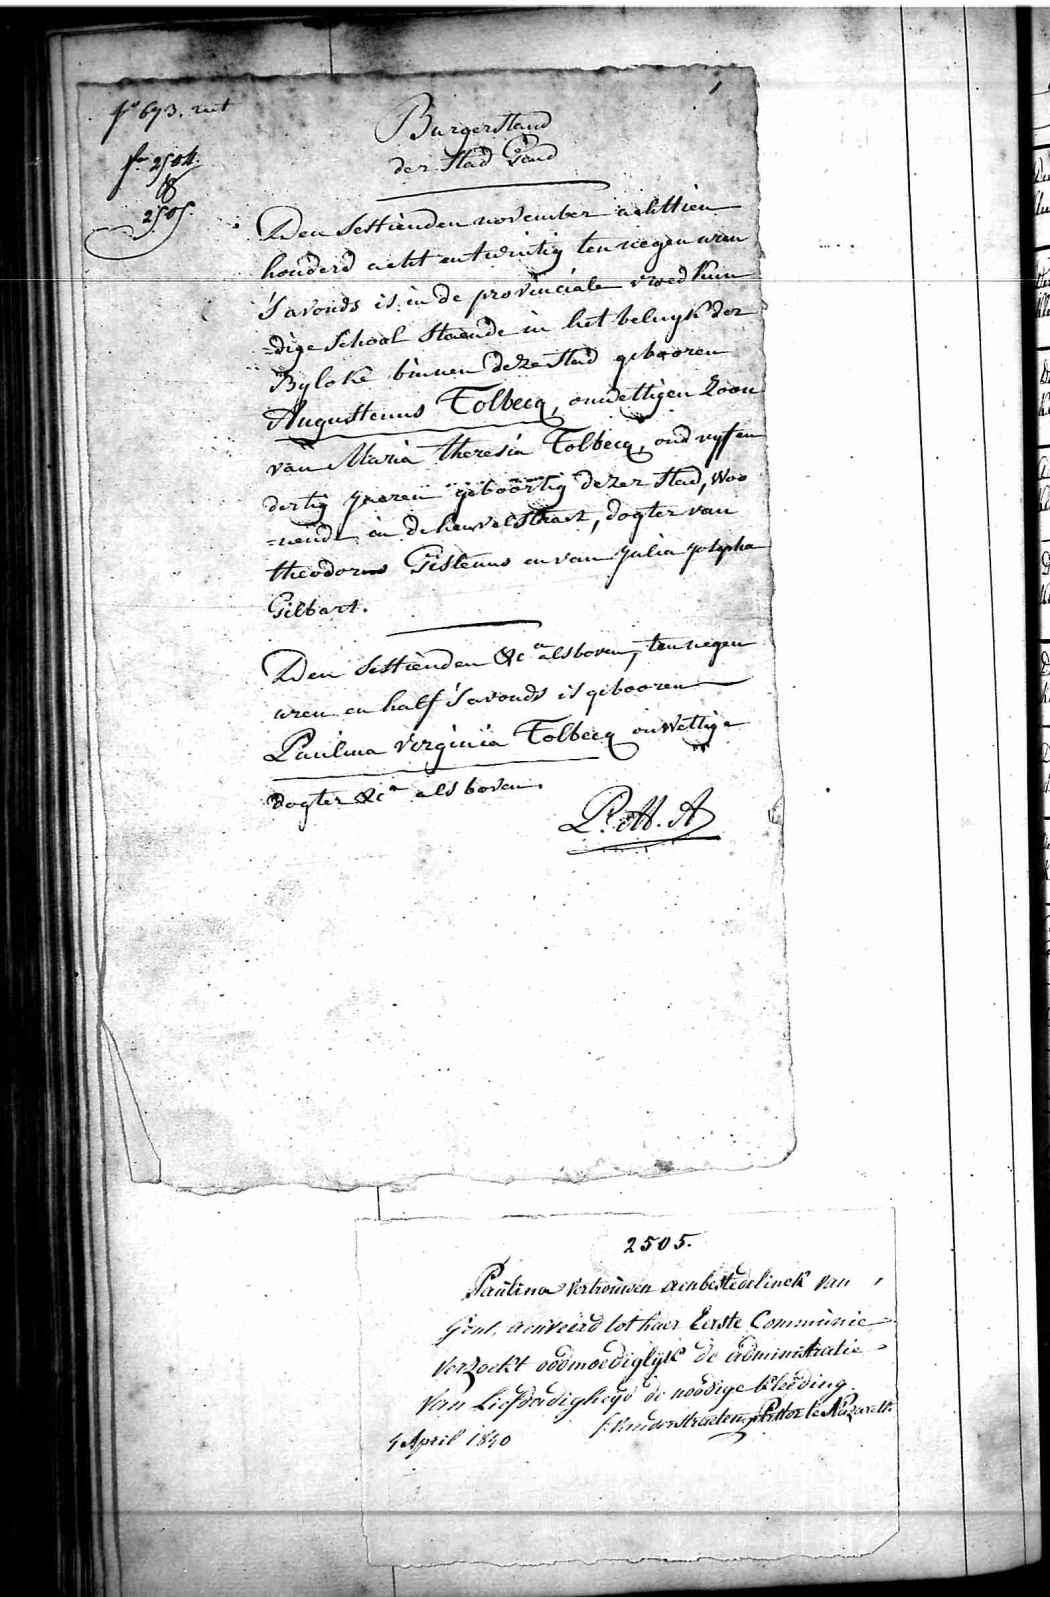 f° 673. rect
f° 2504.
&
2505.
Burgerstand
der Stad Gend
Den Sesthienden november achttien
honderd acht en twintig ten negen uren
'S avonds is in de provinciale vroedkun
=dige School Staende in het beluyk der
Byloke binnen deze Stad gebooren
Augustinus Tolbecq, onwettigen Zoon
van Maria theresia Tolbecq, oud vyf en
dertig jaeren geboortig dezer Stad, woo
=nende in de heuvelstraet, dogter van
theodorus Gislenus en van Julia Josepha
Gilbart.
Den Sesthienden &ca als boven, ten negen
uren en half 'S avonds is gebooren
Paulina virginia Tolbecq onwettige
dogter &ca als boven.
2505.
Paulina aenbestedelinck van
Gent, aenveird tot haer Eerste Communie
verzoekt oodmoediglijk de administratie
van Liefdadigheyd de noodige kleeding.
Pastor te Nazareth
4 April 1840